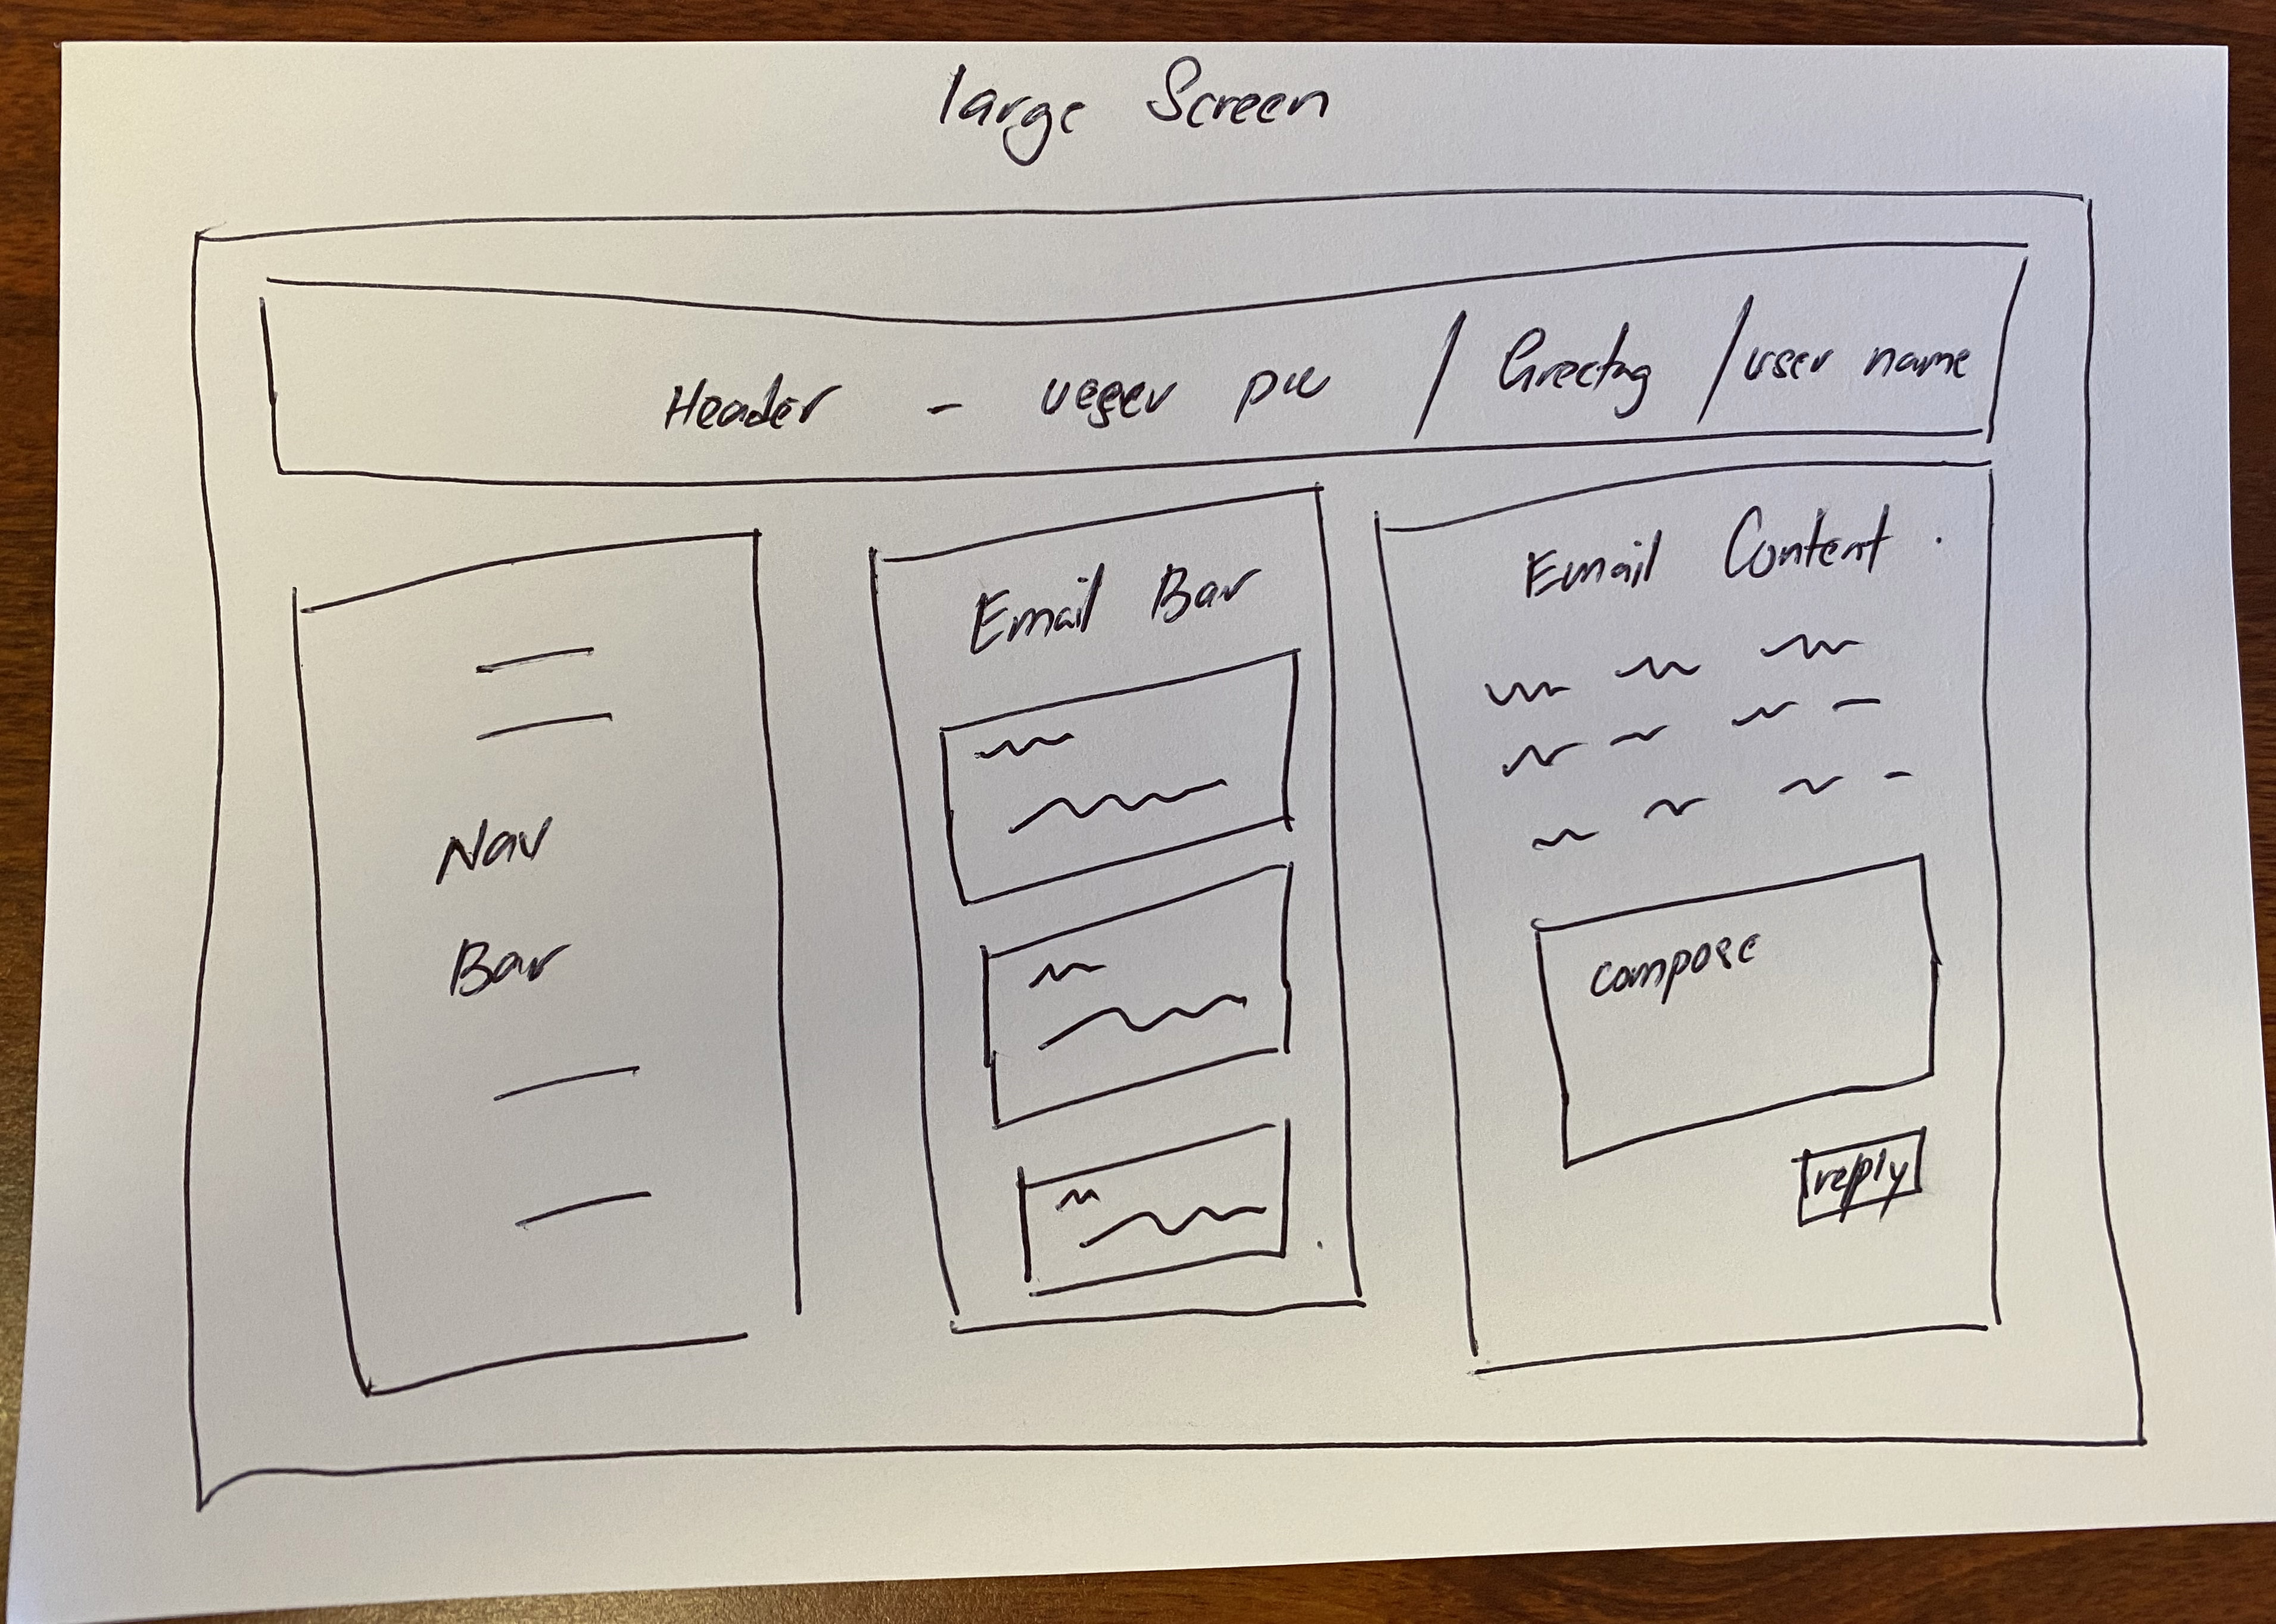 large Screen
Header - user pic / Greeting / user name
Nav
Bar
Email Bar
Email Content
compose
reply